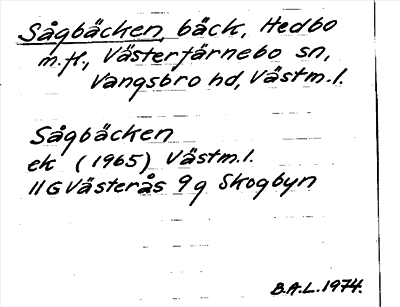 Sågbäcken, bäck, Hedbo
m.fl., Västerfärnebo sn,
Vangsbro hd, Västm.l.
Sågbäcken
ek (1965) Västm.l.
11G Västerås 9g Skogbyn
B.A.L. 1974.